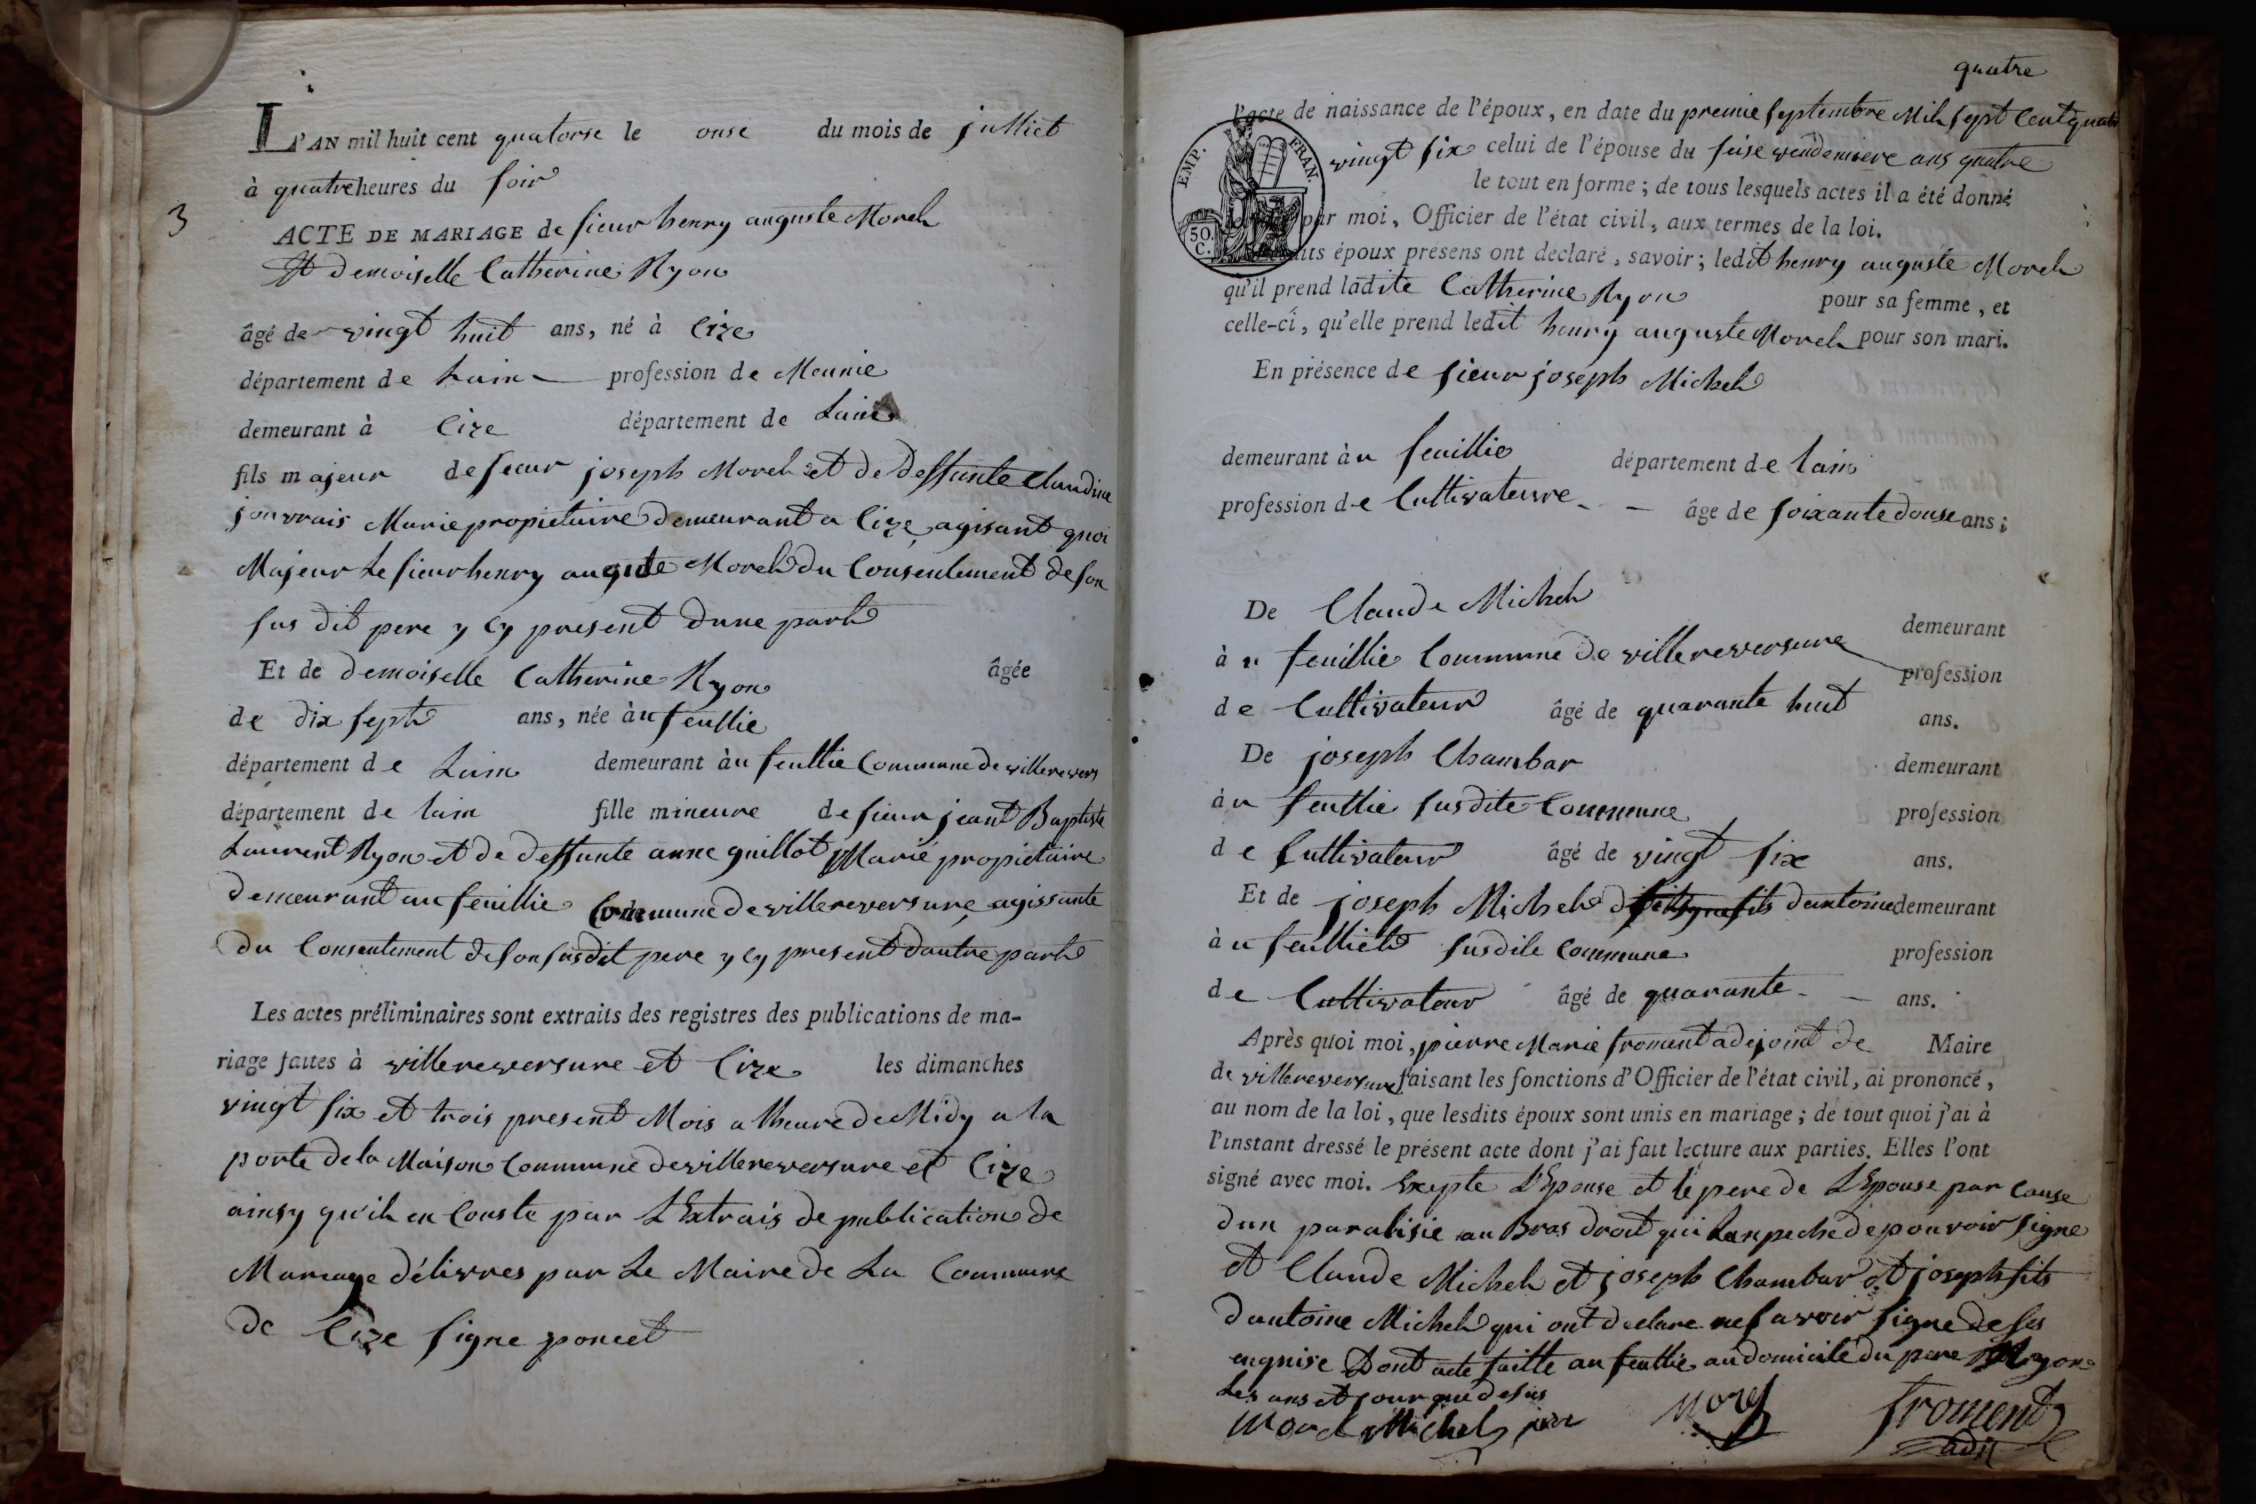 L'AN mil huit cent quatorse le onse du mois de julliet
à quatre heures du soir
3
ACTE DE MARIAGE de sieur henry auguste Morel
Et demoiselle Catherine Ryon
âgé de vingt huit ans, né à Cize
département de Lain profession de Meunie
demeurant à Cize département de Lain
fils majeur de sieur joseph Morel et de deffunte Claudine
jouvrais Marie propietaire demeurant a Cize, agisant quoi
Majeur Le sieur henry auguste Morel du Consentement de son
sus dit pere y cy present dune part
Et de demoiselle Catherine Ryon âgée
de dix sept ans, née à u feullie
département de Lain demeurant à u feullie Commune de villerevers
département de lain fille mineure de sieur jeant Baptiste
Laurent Ryon et de deffunte anne guillot Marié propietaire
demeurant au feuillie Commune de villereversure, agissante
du Consentement de son susdit pere y cy present dautre part
Les actes préliminaires sont extraits des registres des publications de ma-
riage faites à villereversure et Cize les dimanches
vingt six et trois present Mois a lheure de Midy a la
porte de la Maison Commune de villereversure et Cize
ainsy qu'il en Conste par L'Extrais de publication de
Mariage délivres par Le Maire de La Commune
de Cize signe poncet
quatre
l'acte de naissance de l'époux, en date du premie septembre Mil sept Cent quatre
vingt six celui de l'épouse du seise vendemiere ans quatre
le tout en forme ; de tous lesquels actes il a été donné
par moi, Officier de l'état civil, aux termes de la loi.
EMP. FRAN.
50. C.
époux présens ont déclaré, savoir ; ledit henry auguste Morel
qu'il prend ladite Catherine Ryon pour sa femme, et
celle-ci, qu'elle prend ledit henry auguste Morel pour son mari.
En présence de sieur joseph Michel
demeurant à u feuillie département de lain
profession de Cultivateure âge de soixante douse ans ;
De Claude Michel demeurant
à u feuillie Commune de villereversure profession
de Cultivateur âgé de quarante huit ans.
De joseph Chambar demeurant
à u feullie susdite Commune profession
de Cultivateur âgé de vingt six ans.
Et de joseph Michel fils dantoine demeurant
à u feulliet susdite Commune profession
de Cultivateur âgé de quarante ans.
Après quoi moi, pierre Marie froment adejoint de Maire
de villereversure faisant les fonctions d'Officier de l'état civil, ai prononcé,
au nom de la loi, que lesdits époux sont unis en mariage ; de tout quoi j'ai à
l'instant dressé le présent acte dont j'ai fait lecture aux parties. Elles l'ont
signé avec moi. Exepte L'Epouse et le pere de L'Epouse par Cause
dun paralisie au Bras droit qui Lanpeche de pouvoir signe
et Claude Michel et joseph Chambar et joseph fils
dantoine Michel qui ont declare ne savoir signe de ses
enquise Dont acte faitte au feullie au domicile du pere Ryon
Les ans et jour que desus
Morel Michel Morel froment
adj